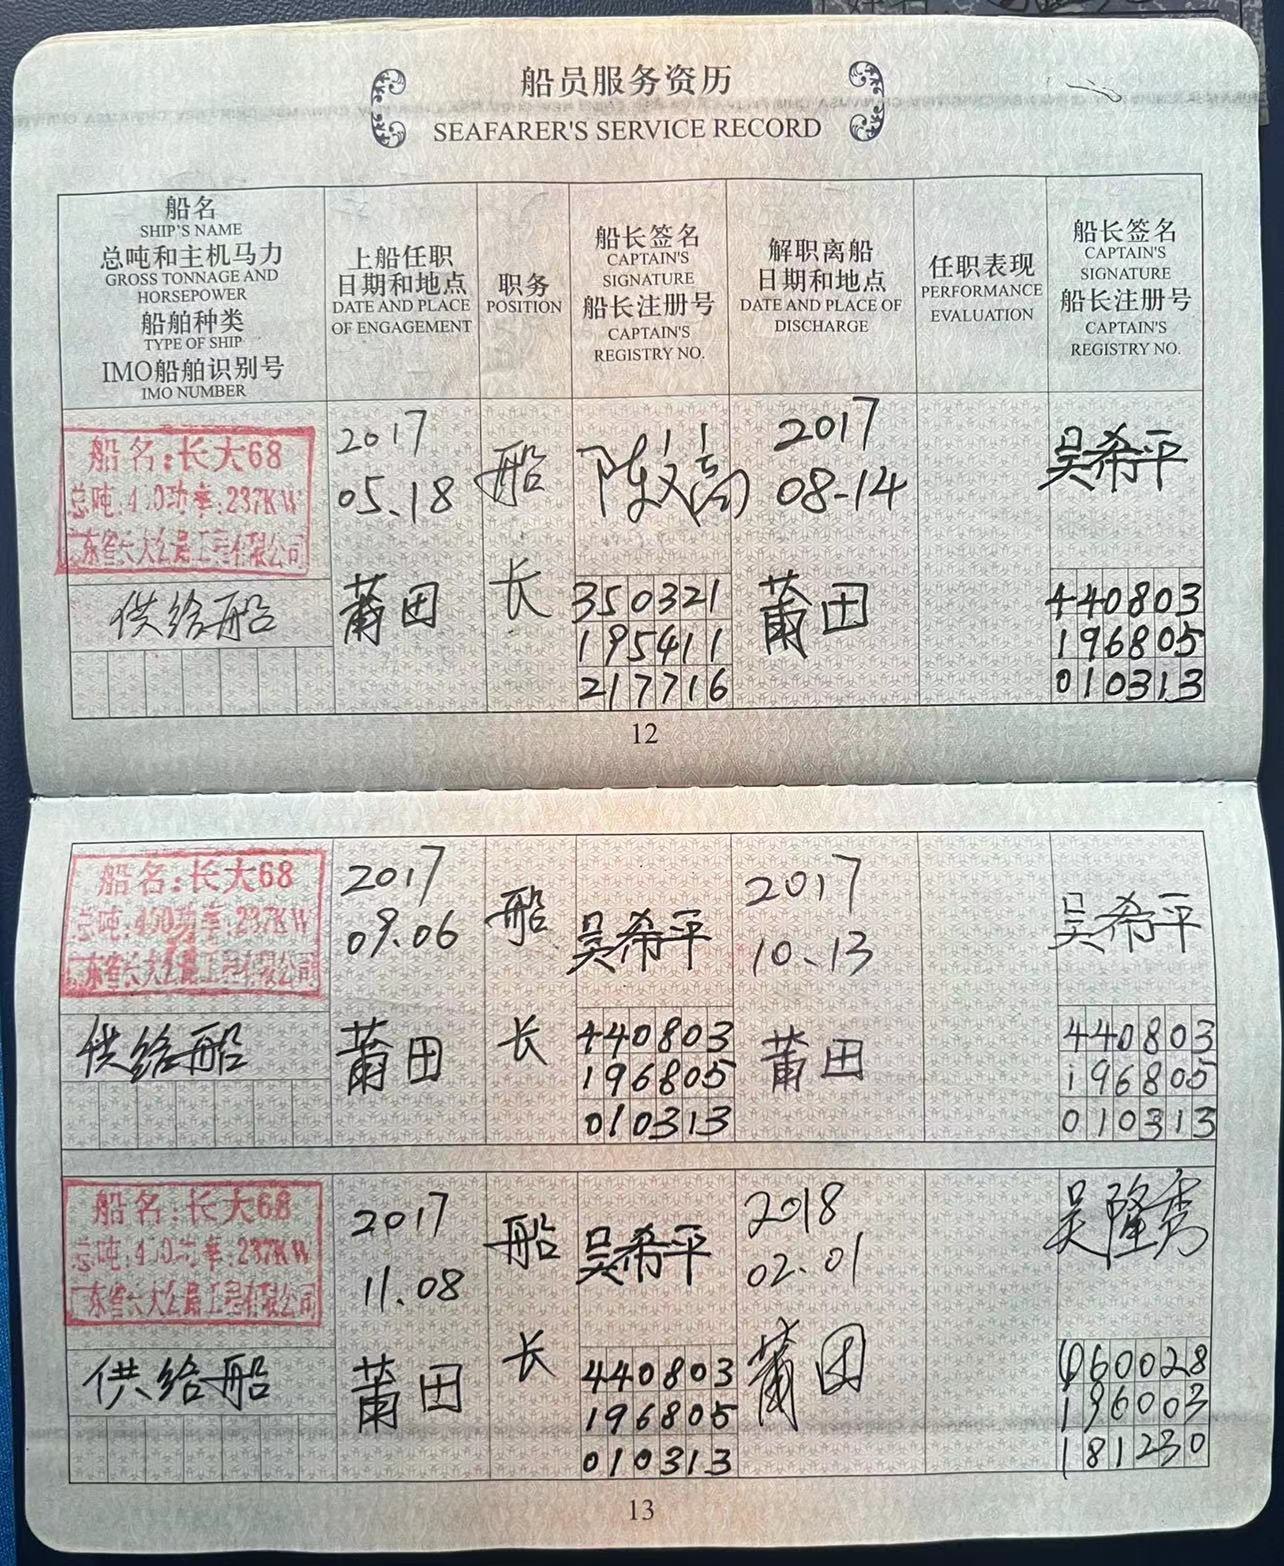 船员服务资历
SEAFARER'S SERVICE RECORD
船名
SHIP'S NAME
总吨和主机马力
GROSS TONNAGE AND
HORSEPOWER
船舶种类
TYPE OF SHIP
IMO船舶识别号
IMO NUMBER
上船任职
日期和地点
DATE AND PLACE
OF ENGAGEMENT
职务
POSITION
船长签名
CAPTAIN'S
SIGNATURE
船长注册号
CAPTAIN'S
REGISTRY NO.
解职离船
日期和地点
DATE AND PLACE OF
DISCHARGE
任职表现
PERFORMANCE
EVALUATION
船长签名
CAPTAIN'S
SIGNATURE
船长注册号
CAPTAIN'S
REGISTRY NO.
船名:长大68
总吨:400功率:237KW
广东省长大公路工程有限公司
供给船
2017
05.18
莆田
船
长
陈文高
350321
195411
217716
2017
08-14
莆田
吴希平
440803
196805
010313
12
船名:长大68
总吨:400功率:237KW
广东省长大公路工程有限公司
供给船
2017
09.06
莆田
船
长
吴希平
440803
196805
010313
2017
10.13
莆田
吴希平
440803
196805
010313
船名:长大68
总吨:400功率:237KW
广东省长大公路工程有限公司
供给船
2017
11.08
莆田
船
长
吴希平
440803
196805
010313
2018
02.01
莆田
吴隆秀
060028
196003
181230
13